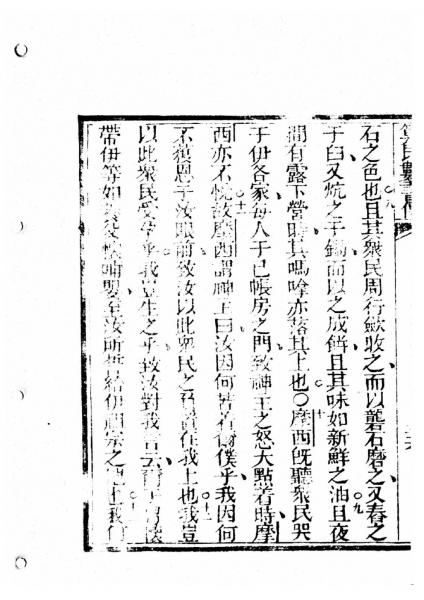 算民數書傳
石之色也且其眾民周行歛收之而以礱石磨之又舂之
于臼又炕之于鍋而以之成餅且其味如新鮮之油且夜
間有露下營時其嗎嗱亦落其上也〇摩西既聽眾民哭
于伊各家每人于己帳房之門致神主之怒大點著時摩
西亦不悅故摩西謂神主曰汝因何若害爾僕乎我因何
不獲恩于汝眼前致汝以此眾民之責在我上也我豈
以此眾民受孕乎我豈生之乎致汝對我言云
帶伊等如嬰至汝所誓給伊祖宗之地上我